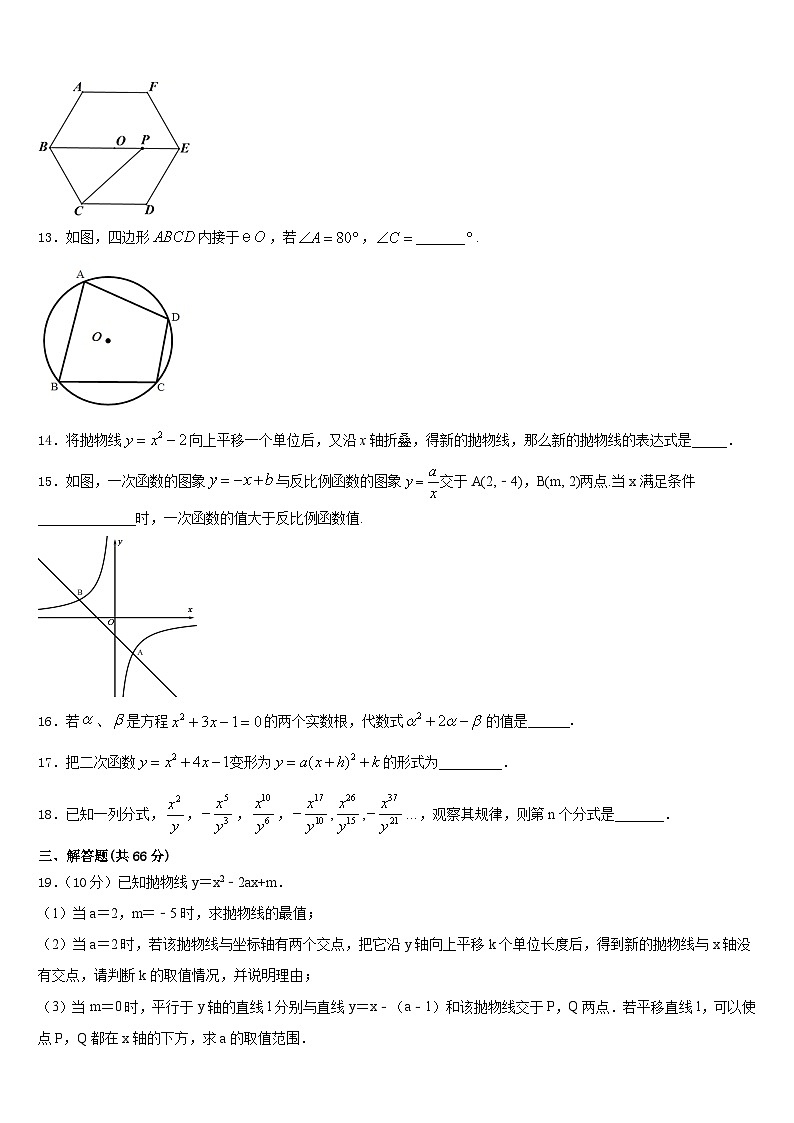 A F
B O P E
C D
13．如图，四边形ABCD内接于⊙O，若∠A＝80°，∠C＝_______°．
A
D
O
B C
14．将抛物线y＝x²－2向上平移一个单位后，又沿x轴折叠，得新的抛物线，那么新的抛物线的表达式是_____．
15．如图，一次函数的图象y＝－x＋b与反比例函数的图象y＝a/x交于A(2,﹣4)，B(m, 2)两点.当x满足条件
______________时，一次函数的值大于反比例函数值.
y
B
O x
A
16．若α、β是方程x²＋3x－1＝0的两个实数根，代数式α²＋2α－β的值是______．
17．把二次函数y＝x²＋4x－1变形为y＝a(x＋h)²＋k的形式为_________．
18．已知一列分式，x²/y，－x⁵/y³，x¹⁰/y⁶，－x¹⁷/y¹⁰，x²⁶/y¹⁵，－x³⁷/y²¹…，观察其规律，则第n个分式是_______．
三、解答题(共66分)
19．（10分）已知抛物线y＝x²﹣2ax+m．
（1）当a＝2，m＝﹣5时，求抛物线的最值；
（2）当a＝2时，若该抛物线与坐标轴有两个交点，把它沿y轴向上平移k个单位长度后，得到新的抛物线与x轴没
有交点，请判断k的取值情况，并说明理由；
（3）当m＝0时，平行于y轴的直线l分别与直线y＝x﹣（a﹣1）和该抛物线交于P，Q两点．若平移直线l，可以使
点P，Q都在x轴的下方，求a的取值范围．